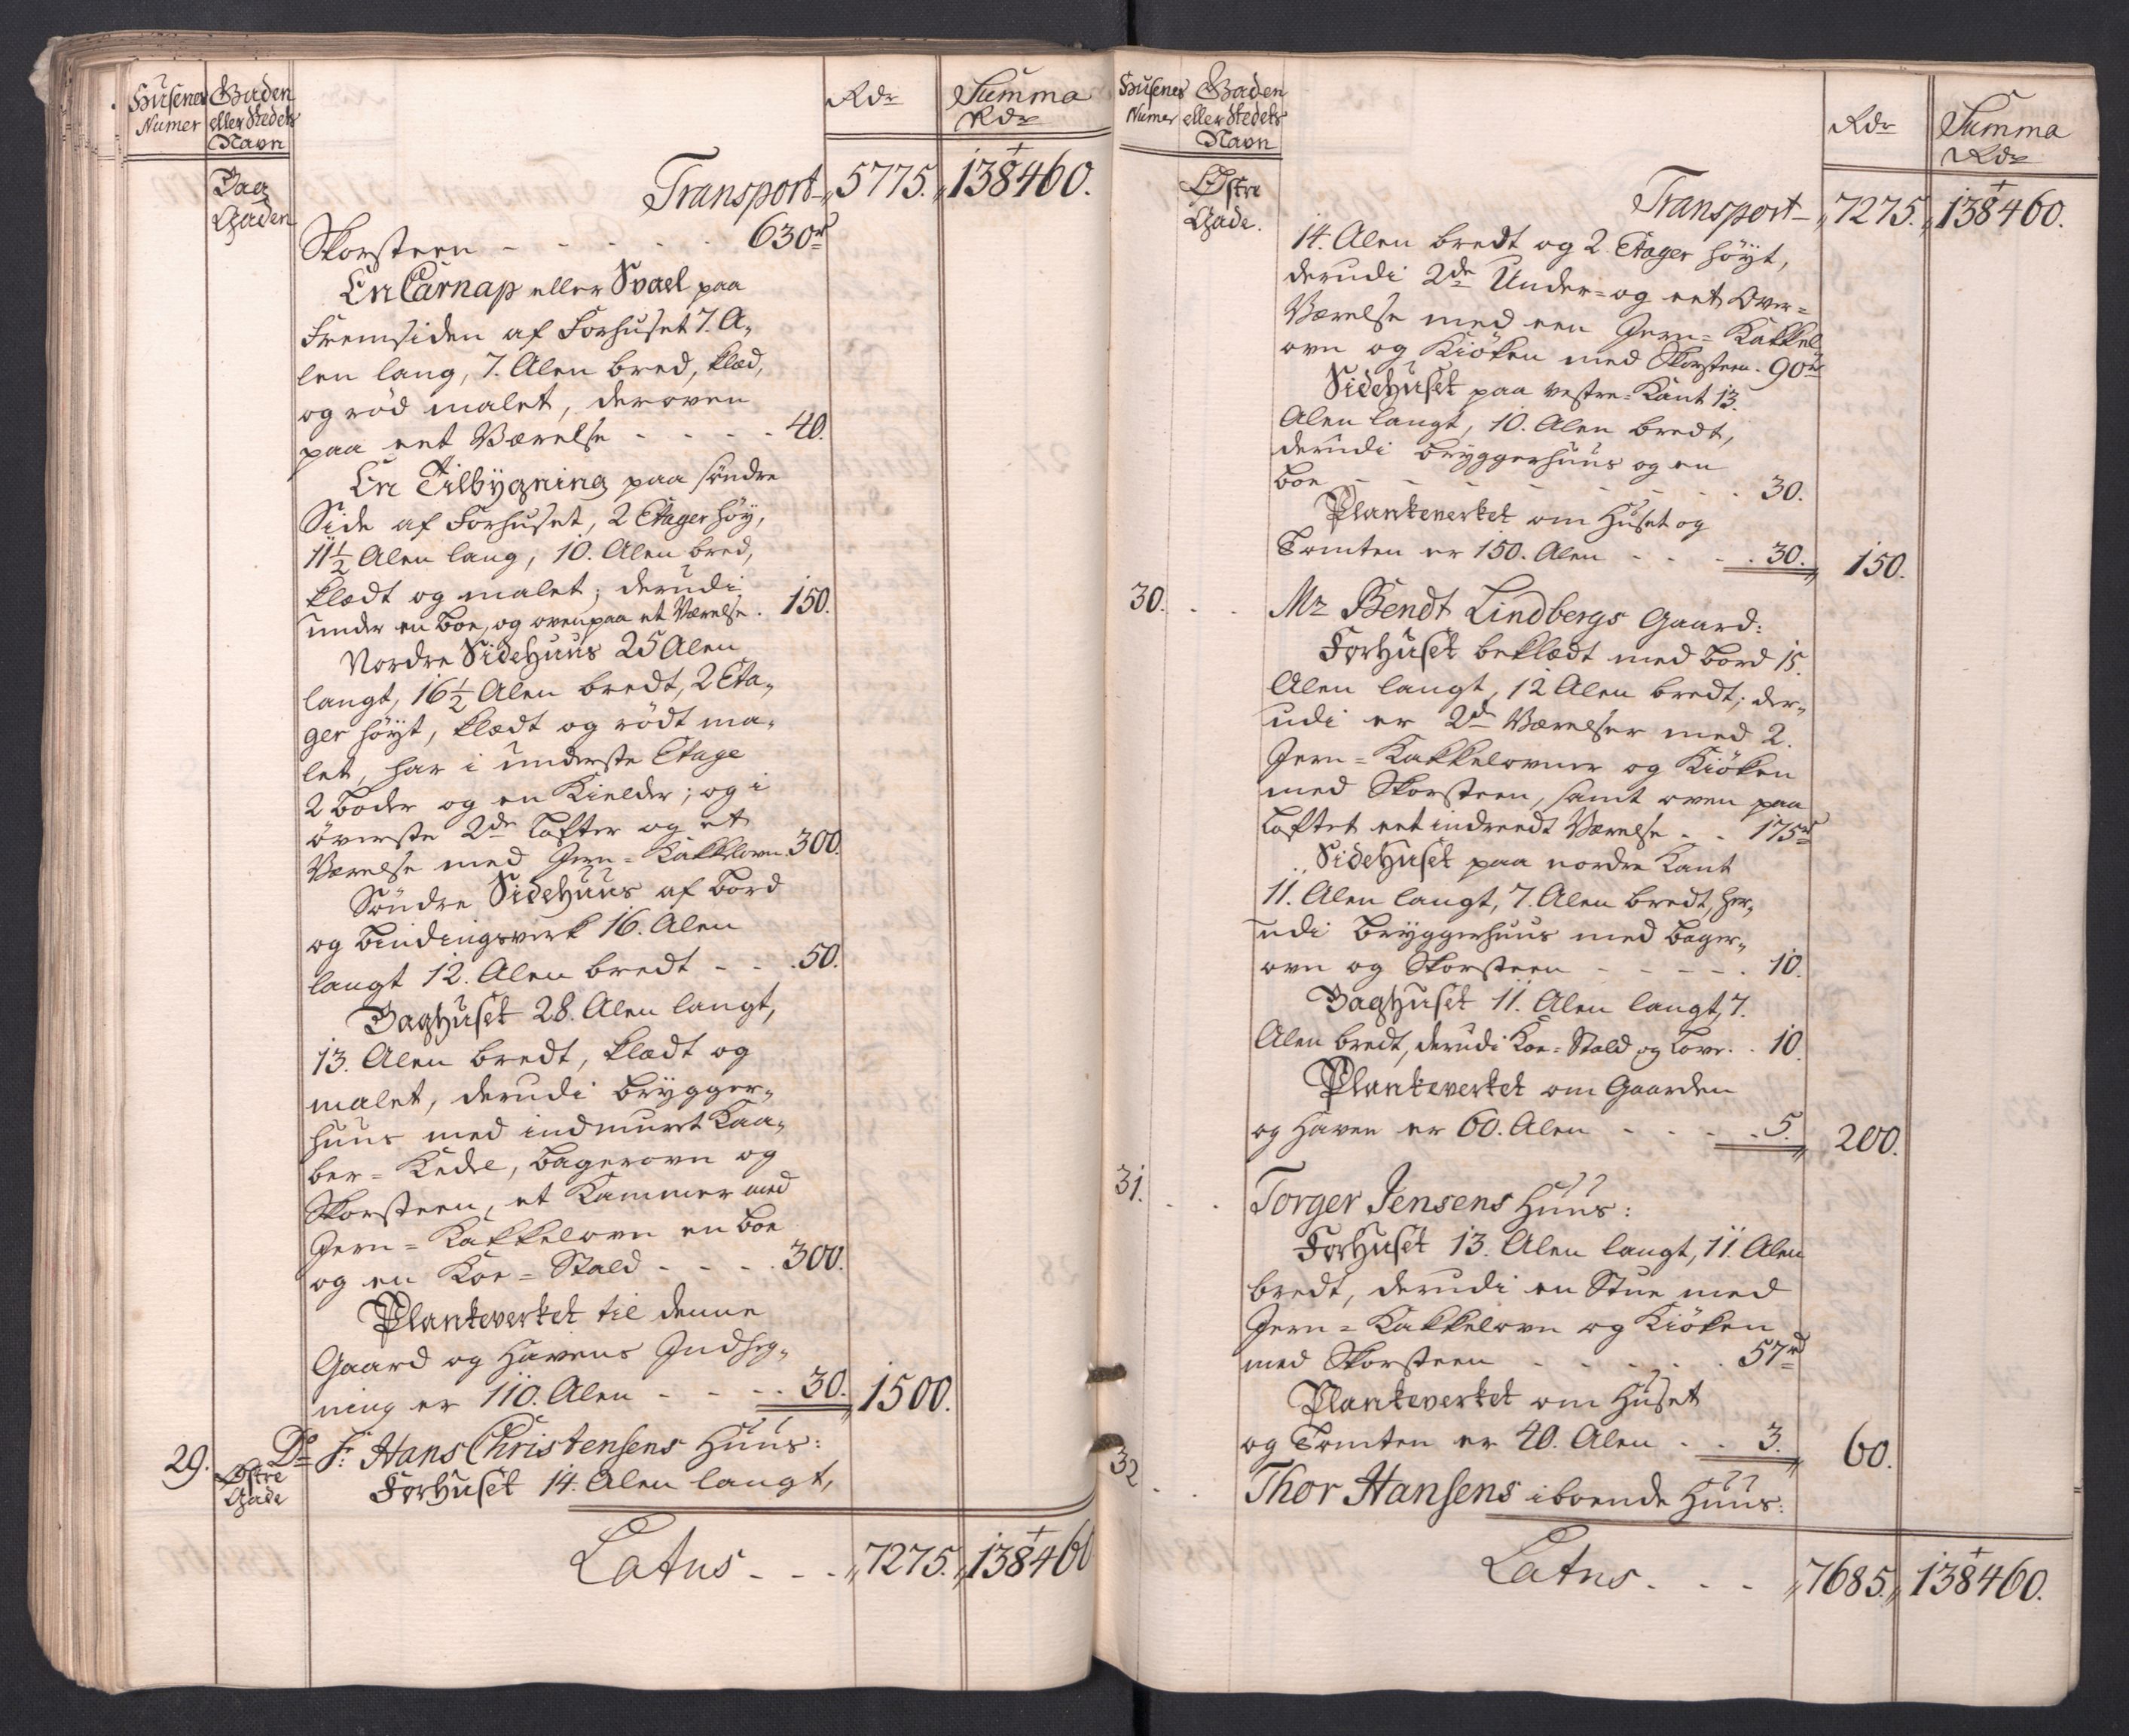 Husenes Gaden Rdr Summa
Numer eller Stedets Rdr
Navn
Bag Transport 5775. 138460.
Gaden
Skorsteen - - - - - 630rd
En Carnap eller Svael paa
Fremsiden af Forhuset 7. A„
len lang, 7. Alen bred, klæd,
og röd malet, deroven
paa eet Værelse - - - - 40.
En Tilbygning paa söndre
Side af Forhuset, 2 Etager höy,
11½ Alen lang, 10. Alen bred,
klædt og malet; derudi
under en Boe, og ovenpaa et Værelse. 150.
Nordre Sidehuus 25 Alen
langt, 16½ Alen bredt, 2 Eta„
ger höyt, klædt og rödt ma„
let, har i underste Etage
2 Boder og en Kielder; og i
överste 2de Lofter og et
Værelse med Jern=Kakkelovn. 300.
Söndre Sidehuus af Bord
og Bindingsverk 16. Alen
langt 12. Alen bredt - - 50.
Baghuset 28. Alen langt,
13. Alen bredt, klædt og
malet, derudi Brygger„
huus med indmuret Kaa„
ber=Kedel, Bagerovn og
Skorsteen, et Kammer med
Jern=Kakkelovn en Boe
og en Koe=Stald - - - 300.
Plankeverket til denne
Gaard og Havens Indheg„
ning er 110. Alen - - - 30. 1500.
29. Do Sr Hans Christensens Huus:
Östre Forhuset 14. Alen langt,
Gade
Latus - - - 7275. 138460
Husenes Gaden Rdr Summa
Numer eller Stedets Rdr
Navn
Östre Transport - 7275. 138460.
Gade.
14. Alen bredt og 2. Etager höyt,
derudi 2de Under= og eet Over=
Værelse med een Jern=Kakkel
ovn og Kiöken med Skorsteen. 90rd
Sidehuset paa vestre=Kant 13.
Alen langt, 10. Alen bredt,
derudi Bryggerhuus og en
Boe - - - - - - - 30.
Plankeverket om Huset og
Tomten er 150. Alen - - - 30. 150.
30. - - Mr Bendt Lindbergs Gaard:
Forhuset beklædt med Bord 15.
Alen langt, 12 Alen bredt; der„
udi er 2de Værelser med 2.
Jern=Kakkelovner og Kiöken
med Skorsteen, samt oven paa
Loftet eet indreedt Værelse - - 175rd
Sidehuset paa nordre Kant
11. Alen langt, 7. Alen bredt, her„
udi Bryggerhuus med Bager„
ovn og Skorsteen - - - - 10.
Baghuset 11. Alen langt, 7.
Alen bredt, derudi Koe=Stald og Love. . 10.
Plankeverket om Gaarden
og Haven er 60. Alen - - - 5. 200.
31. - - Torger Jensens Huus:
Forhuset 13. Alen langt, 11. Alen
bredt, derudi en Stue med
Jern=Kakkelovn og Kiöken
med Skorsteen - - - - 57rd
Plankeverket om Huset
og Tomten er 40. Alen - - 3. 60.
32 - - Thor Hansens iboende Huus:
Latus - - - 7685. 138460.